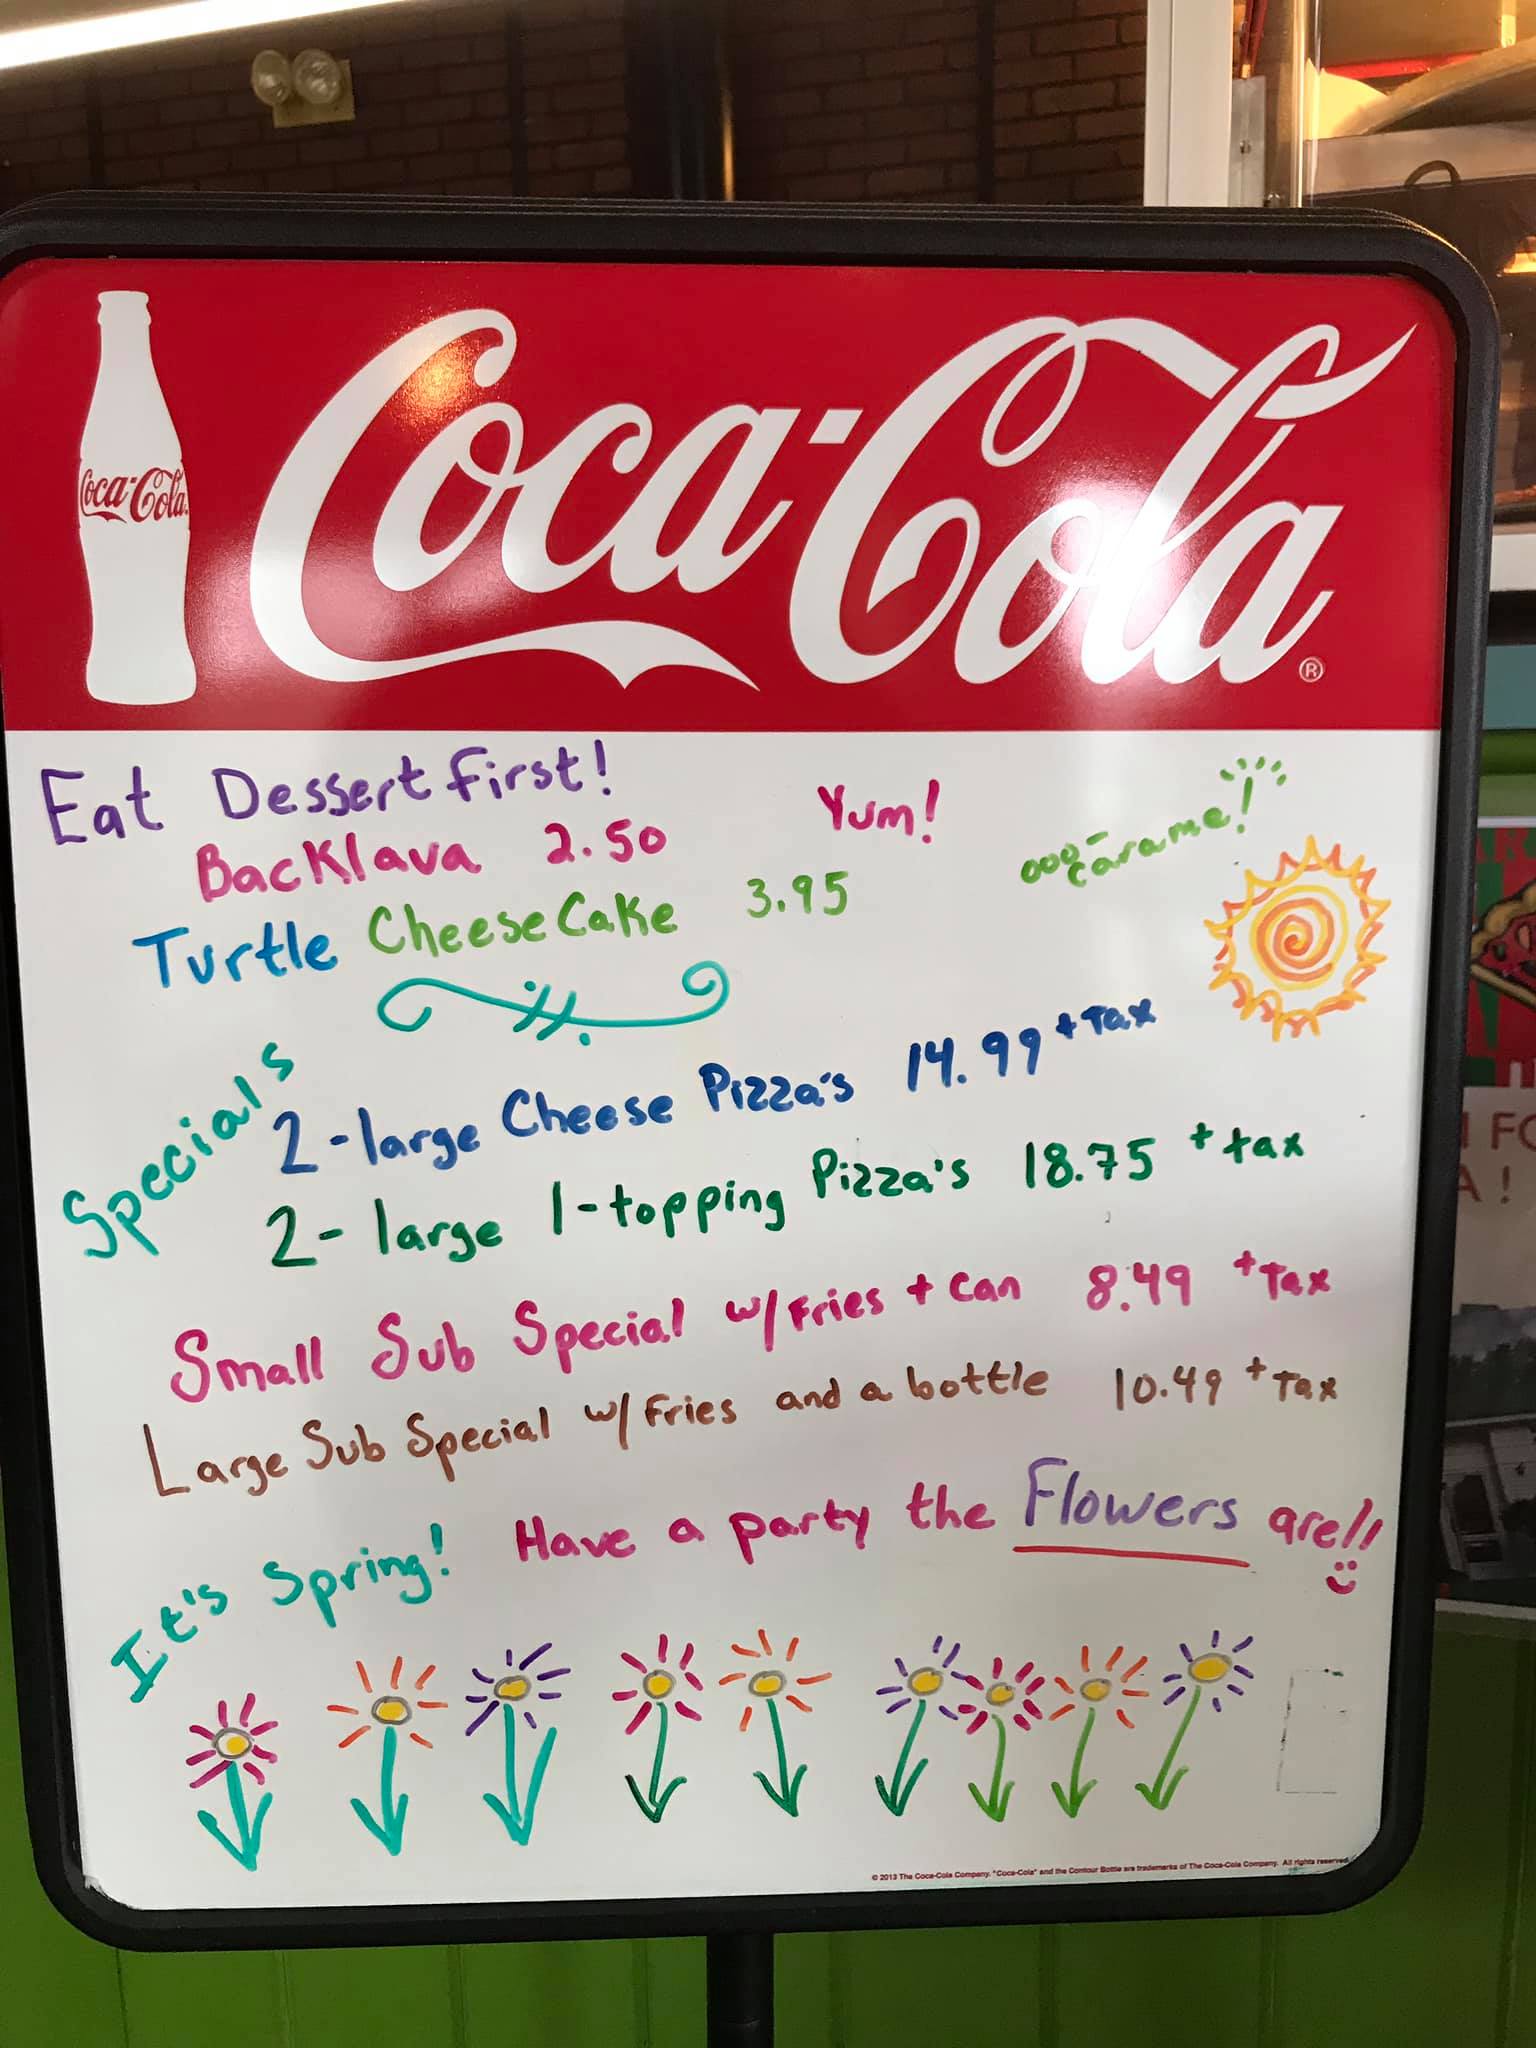 Coca-Cola
Coca-Cola®
Eat Dessert first!
Backlava 2.50 Yum!
Turtle CheeseCake 3.95 ooo-carame!
Specials
2-large Cheese Pizza's 14.99 + Tax
2- large 1-topping Pizza's 18.75 + tax
Small Sub Special w/Fries + Can 8.49 + Tax
Large Sub Special w/Fries and a bottle 10.49 + Tax
It's Spring! Have a party the Flowers are!!
© 2013 The Coca-Cola Company. "Coca-Cola" and the Contour Bottle are trademarks of The Coca-Cola Company. All rights reserved.